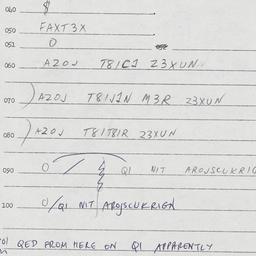 040 $
050 FAXT3X
051 0
060 AZOJ T8ICI Z3XUN
070 AZOJ T8IJIN M3R Z3XUN
080 AZOJ T8IT8IR Z3XUN
090 0 / QI NIT AROJSCUKRIG
100 0/QI NIT AROJSCUKRIGN
QED FROM HERE ON QI APPARENTLY